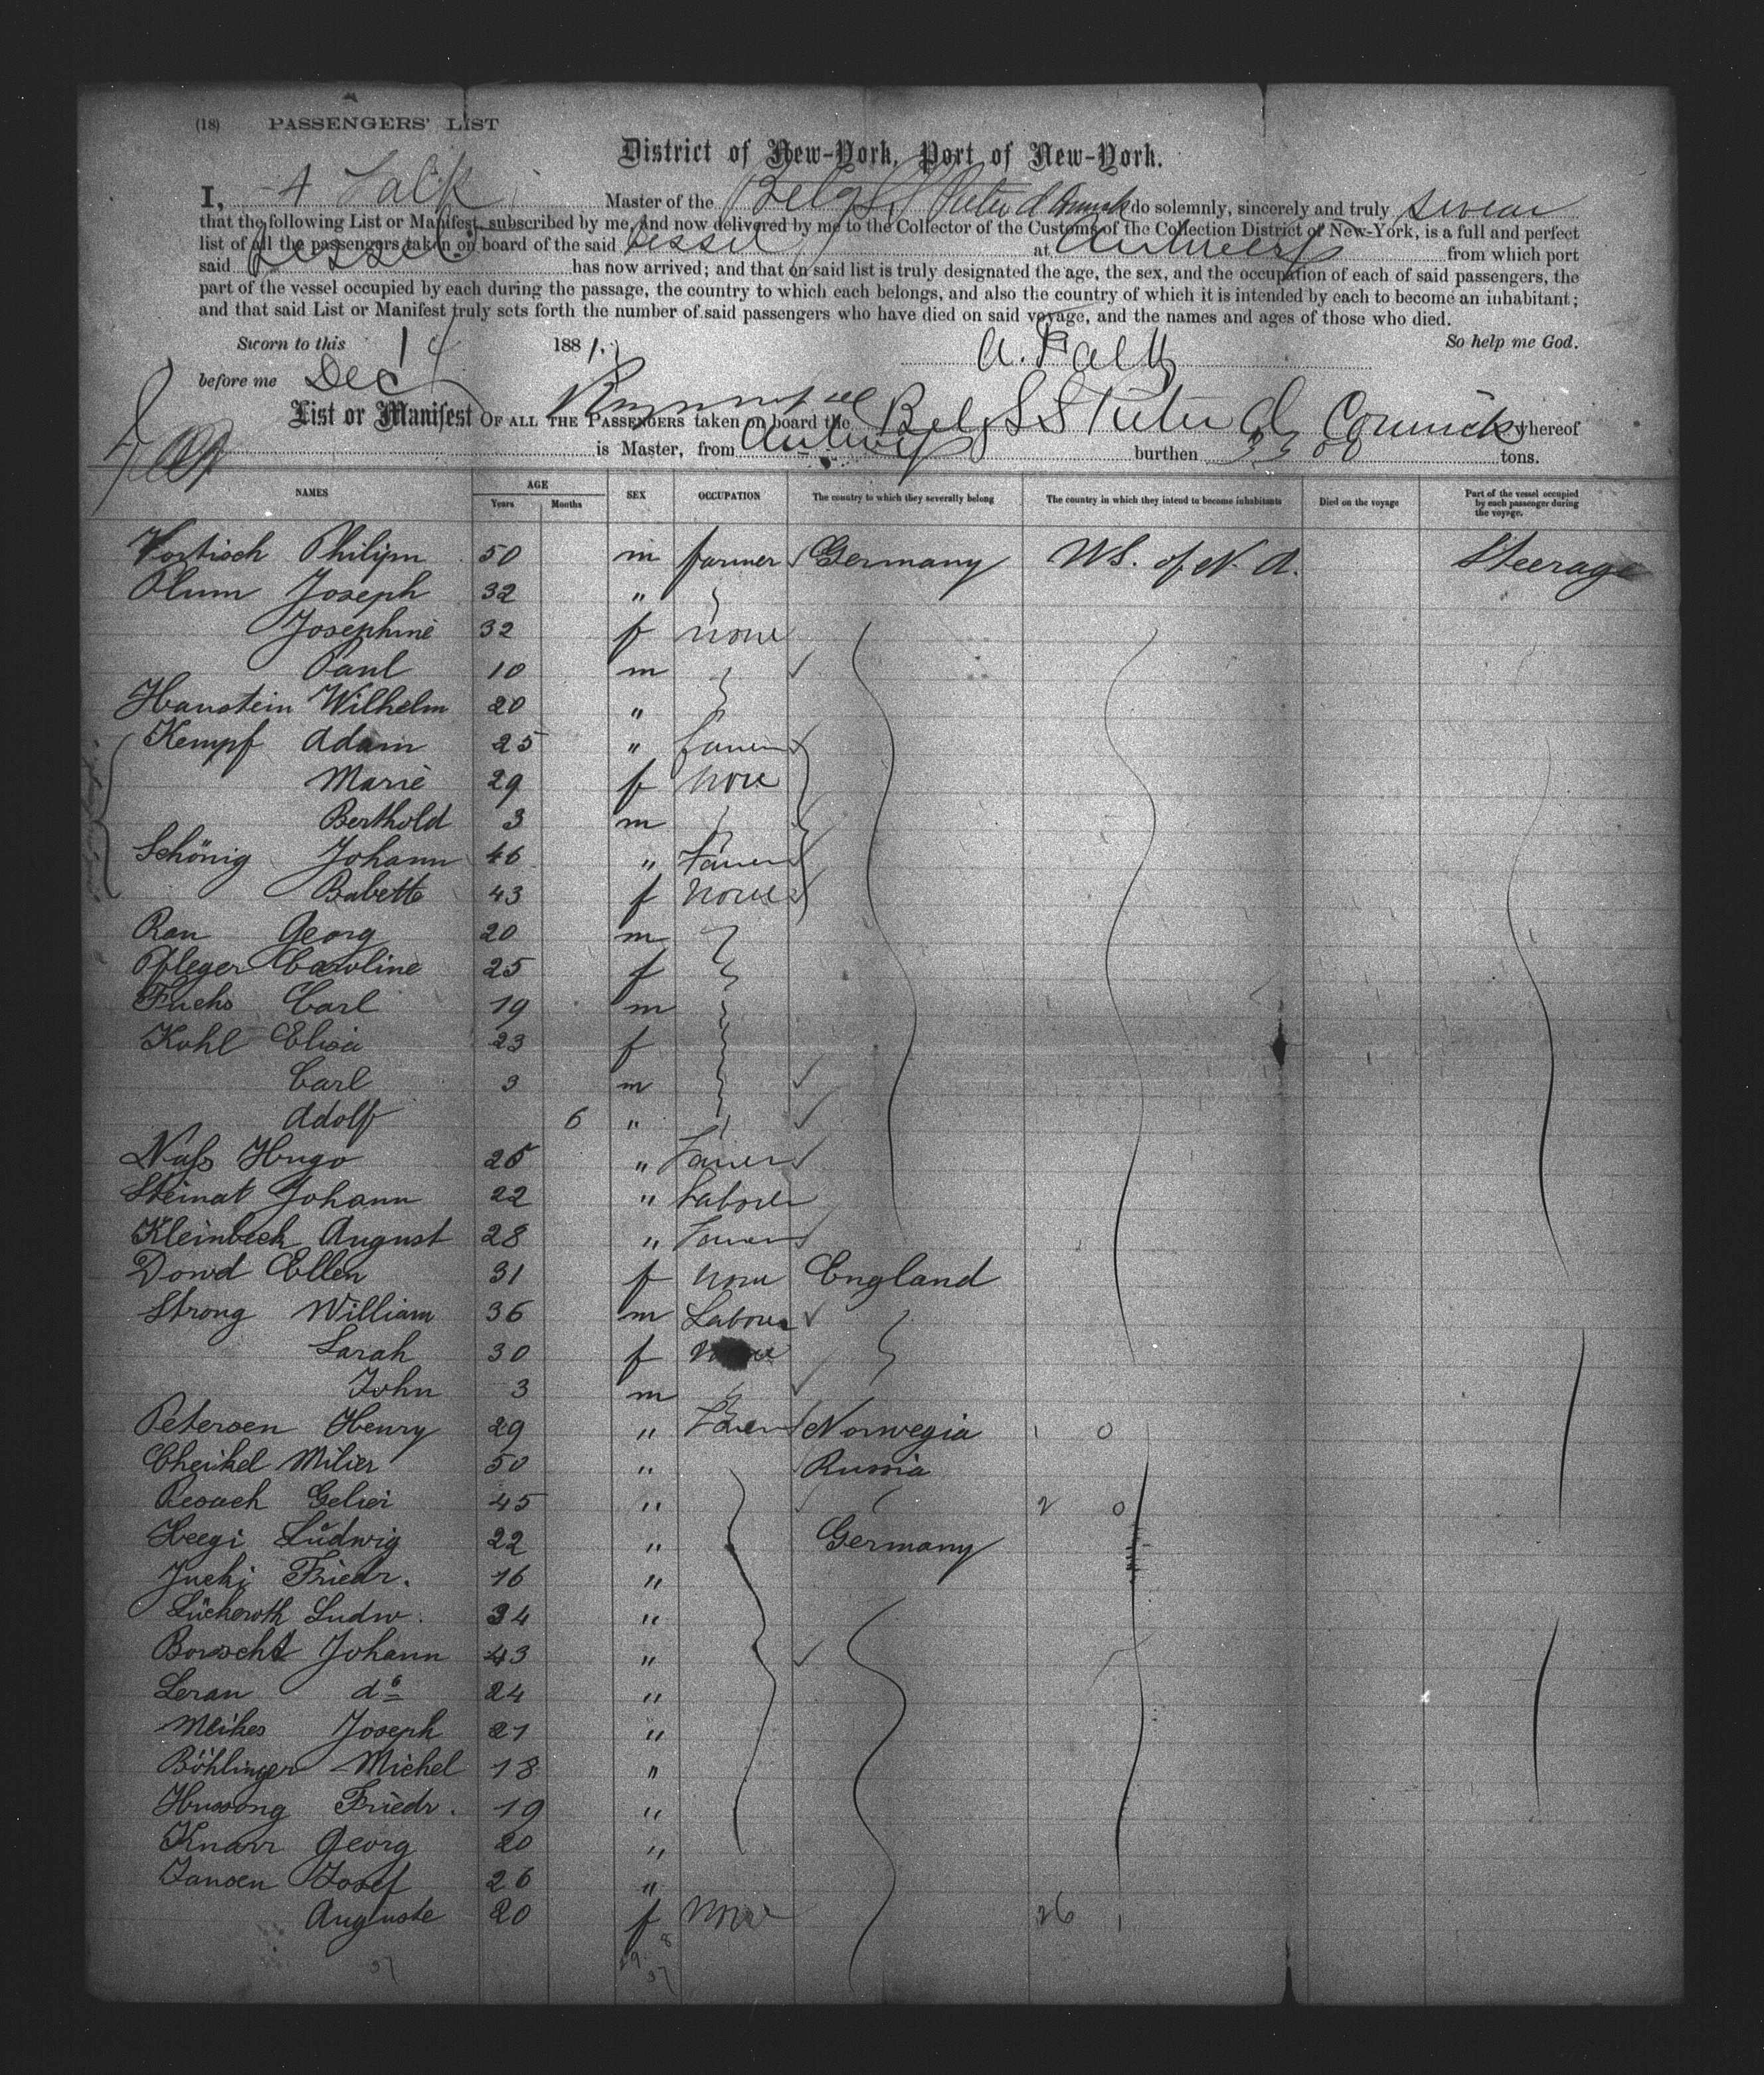 (18) PASSENGERS' LIST
District of New-York, Port of New-York.
I, A Falk Master of the Belg SS Pieter d Connick do solemnly, sincerely and truly swear
that the following List or Manifest, subscribed by me, and now delivered by me to the Collector of the Customs of the Collection District of New-York, is a full and perfect
list of all the passengers taken on board of the said Vessel at Antwerp from which port
said Vessel has now arrived; and that on said list is truly designated the age, the sex, and the occupation of each of said passengers, the
part of the vessel occupied by each during the passage, the country to which each belongs, and also the country of which it is intended by each to become an inhabitant;
and that said List or Manifest truly sets forth the number of said passengers who have died on said voyage, and the names and ages of those who died.
Sworn to this 14 1881. A. Falk So help me God.
before me Dec
List or Manifest OF ALL THE PASSENGERS taken on board the Belg SS Pieter d Connick whereof
is Master, from Antwerp burthen 3500 tons.
NAMES AGE Years Months SEX OCCUPATION The country to which they severally belong The country in which they intend to become inhabitants Died on the voyage Part of the vessel occupied by each passenger during the voyage.
Vortisch Philipp 50 m farmer Germany US. of N. A. Steerage
Plum Joseph 32 "
Josephine 32 f none
Paul 10 m
Hanstein Wilhelm 20 "
Kempf Adam 25 " farmer
Marie 29 f none
Berthold 3 m
Schönig Johann 46 " Farmer
Babette 43 f none
Rau Georg 20 m
Pfleger Caroline 25 f
Fuchs Carl 19 m
Kohl Elisa 23 f
Carl 3 m
Adolf 6 "
Nass Hugo 25 " Farmer
Steinat Johann 22 " Laborer
Kleinbeck August 28 " Farmer
Dowd Ellen 31 f none England
Strong William 36 m Laborer
Sarah 30 f none
John 3 m
Petersen Henry 29 " Farmer Norwegia 1 0
Cheikel Milier 50 " Russia
Pesach 45 " 2 0
Heegi Ludwig 22 " Germany
Juchi Friedr. 16 "
Lückeroth Ludw. 34 "
Borscht Johann 43 "
Leran do 24 "
Meikes Joseph 21 "
Böhlinger Michel 18 "
Hussong Friedr. 19 "
Knarr Georg 20 "
Jansen Josef 26 "
Auguste 20 f none 26 1
37